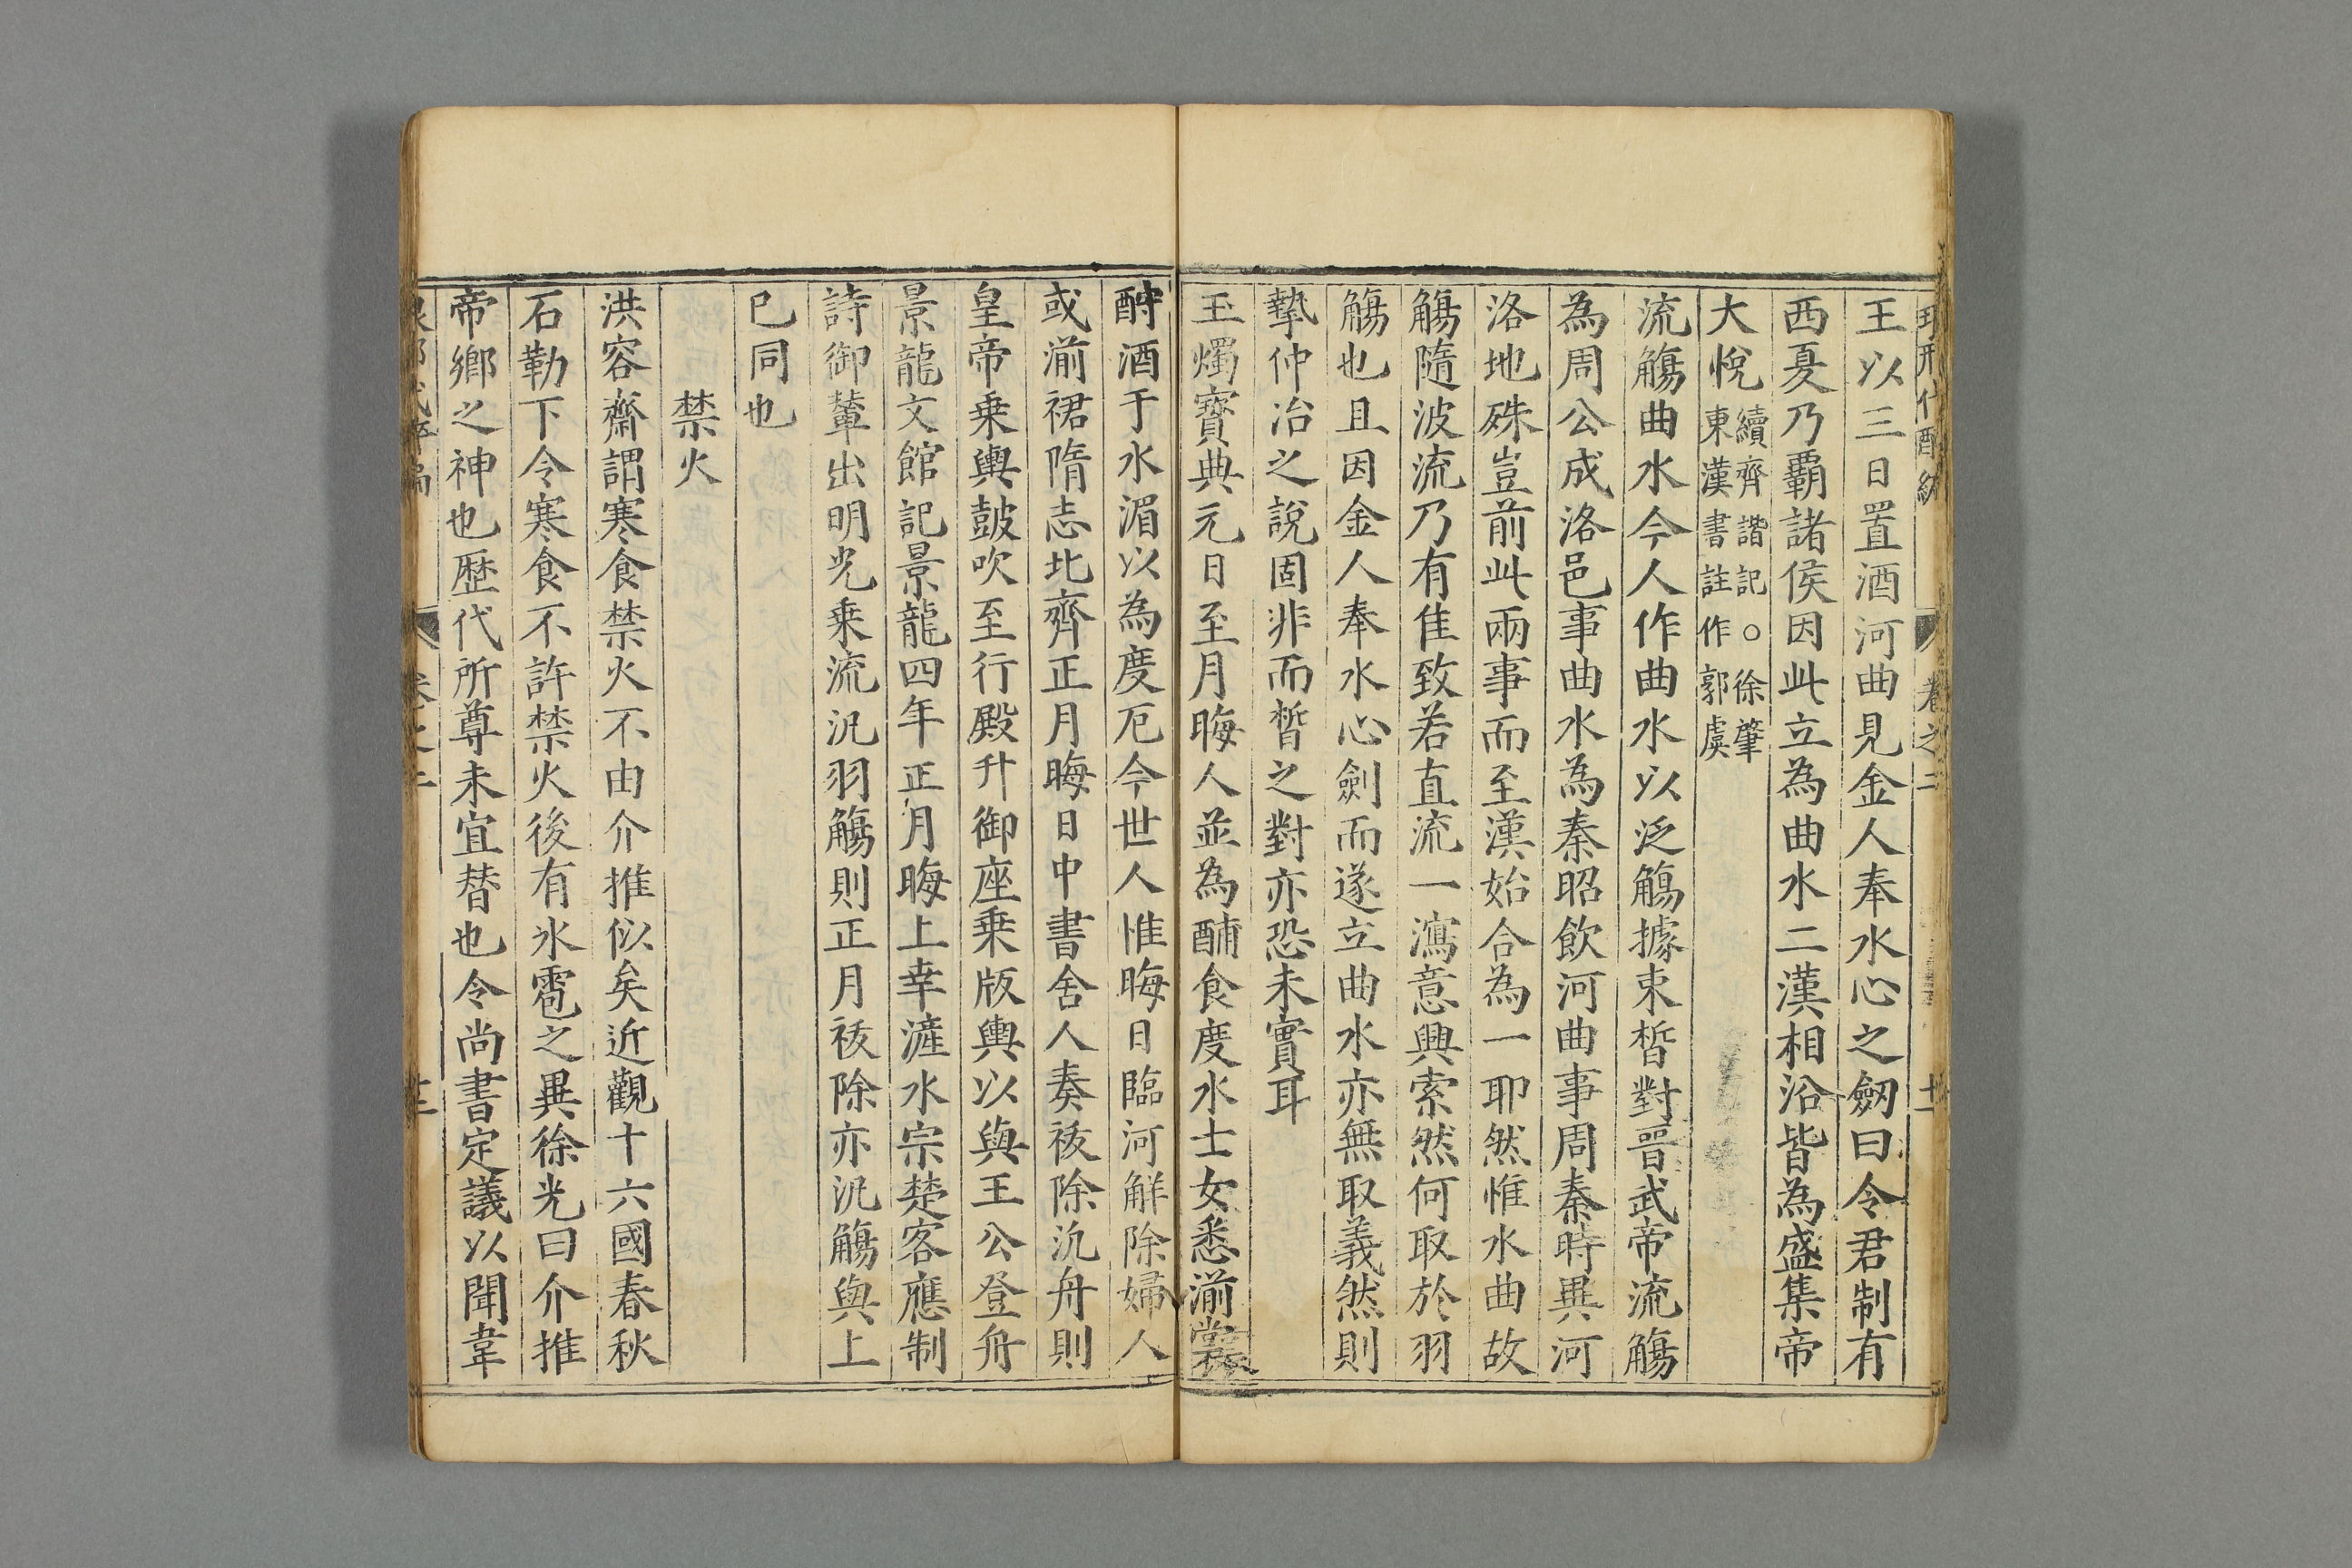 王以三日置酒河曲見金人奉水心之劒曰令君制有
西夏乃霸諸侯因此立為曲水二漢相沿皆為盛集帝
大悅續齊諧記○徐肇
東漢書註作郭虞
流觴曲水今人作曲水以泛觴據束晳對晉武帝流觴
為周公成洛邑事曲水為秦昭飲河曲事周秦時異河
洛地殊豈前此兩事而至漢始合為一耶然惟水曲故
觴隨波流乃有佳致若直流一瀉意興索然何取於羽
觴也且因金人奉水心劍而遂立曲水亦無取義然則
摯仲治之說固非而晳之對亦恐未實耳
玉燭寶典元日至月晦人並為酺食度水士女悉湔裳
酹酒于水湄以為度厄今世人惟晦日臨河解除婦人
或湔裙隋志北齊正月晦日中書舍人奏祓除汎舟則
皇帝乗輿鼓吹至行殿升御座乗版輿以與王公登舟
景龍文館記景龍四年正月晦上幸滻水宗楚客應制
詩御輦出明光乗流汎羽觴則正月祓除亦汎觴與上
巳同也
禁火
洪容齋謂寒食禁火不由介推似矣近觀十六國春秋
石勒下令寒食不許禁火後有氷雹之異徐光曰介推
帝鄉之神也歴代所尊未宜替也令尚書定議以聞韋
卷之二